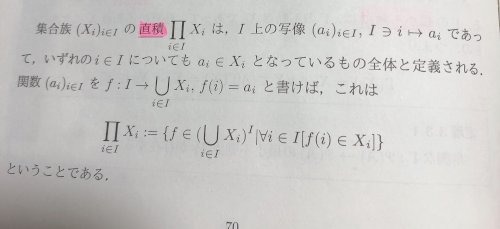 集合族 (X_i)_{i∈I} の直積 ∏_{i∈I} X_i は，I 上の写像 (a_i)_{i∈I}, I ∋ i ↦ a_i であっ
て，いずれの i ∈ I についても a_i ∈ X_i となっているもの全体と定義される．
関数 (a_i)_{i∈I} を f : I → ⋃_{i∈I} X_i, f(i) = a_i と書けば，これは
∏_{i∈I} X_i := {f ∈ (⋃_{i∈I} X_i)^I|∀i ∈ I[f(i) ∈ X_i]}
ということである．
70